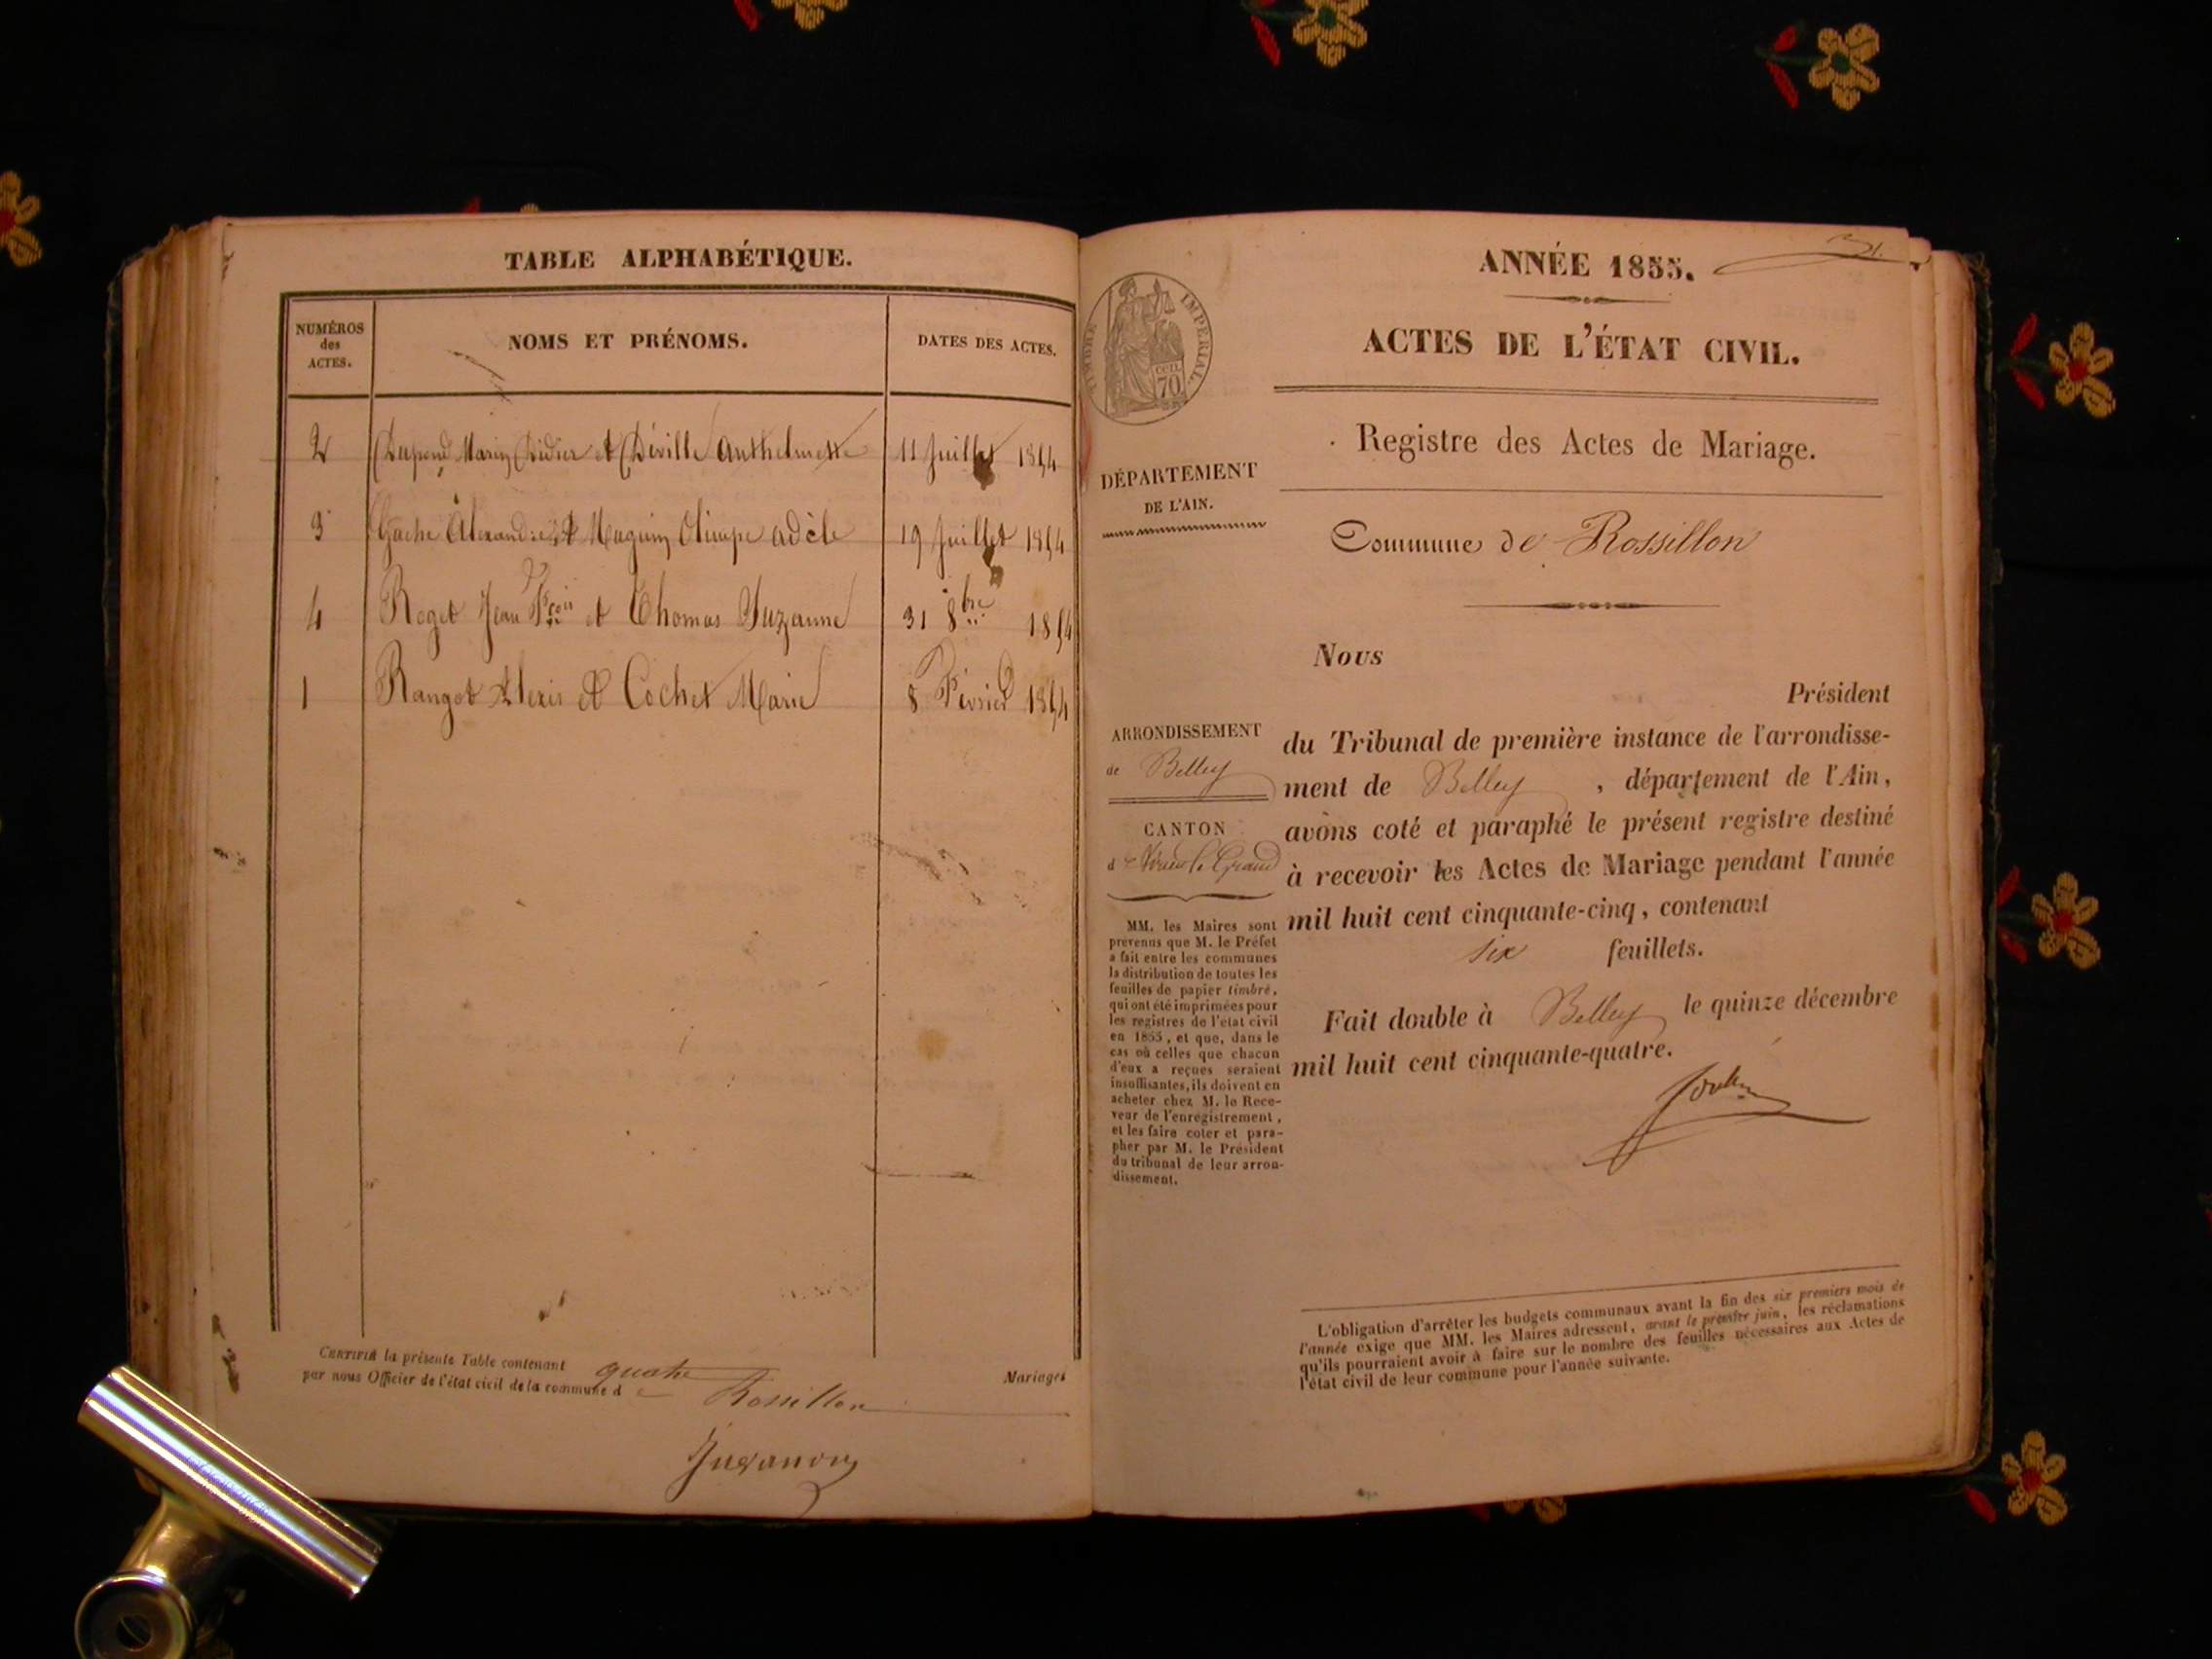 TABLE ALPHABÉTIQUE.
NUMÉROS
des
ACTES.
NOMS ET PRÉNOMS.
DATES DES ACTES.
2 Dupond Marin Didier et Déville Anthelmette 11 Juillet 1854
3 Gache Alexandre et Muguin Olimpe adèle 19 Juillet 1854
4 Roget Jean Fçois et Thomas Suzanne 31 8bre 1854
1 Rangot Alexis et Cochet Marie 8 Février 1854
CERTIFIÉ la présente Table contenant quatre Mariages
par nous Officier de l'état civil de la commune de Rossillon
ANNÉE 1855.
ACTES DE L'ÉTAT CIVIL.
TIMBRE IMPÉRIAL.
CEN.
70
Registre des Actes de Mariage.
DÉPARTEMENT
DE L'AIN.
Commune de Rossillon
Nous
Président
du Tribunal de première instance de l'arrondisse-
ment de Belley, département de l'Ain,
avons coté et paraphé le présent registre destiné
à recevoir les Actes de Mariage pendant l'année
mil huit cent cinquante-cinq, contenant
six feuillets.
Fait double à Belley le quinze décembre
mil huit cent cinquante-quatre.
ARRONDISSEMENT
de Belley
CANTON
de Virieu le Grand
MM. les Maires sont
prévenus que M. le Préfet
a fait entre les communes
la distribution de toutes les
feuilles de papier timbré,
qui ont été imprimées pour
les registres de l'état civil
en 1855, et que, dans le
cas où celles que chacun
d'eux a reçues seraient
insuffisantes, ils doivent en
acheter chez M. le Rece-
veur de l'enregistrement,
et les faire coter et para-
pher par M. le Président
du tribunal de leur arron-
dissement.
L'obligation d'arrêter les budgets communaux avant la fin des six premiers mois de
l'année exige que MM. les Maires adressent, avant le premier juin, les réclamations
qu'ils pourraient avoir à faire sur le nombre des feuilles nécessaires aux Actes de
l'état civil de leur commune pour l'année suivante.